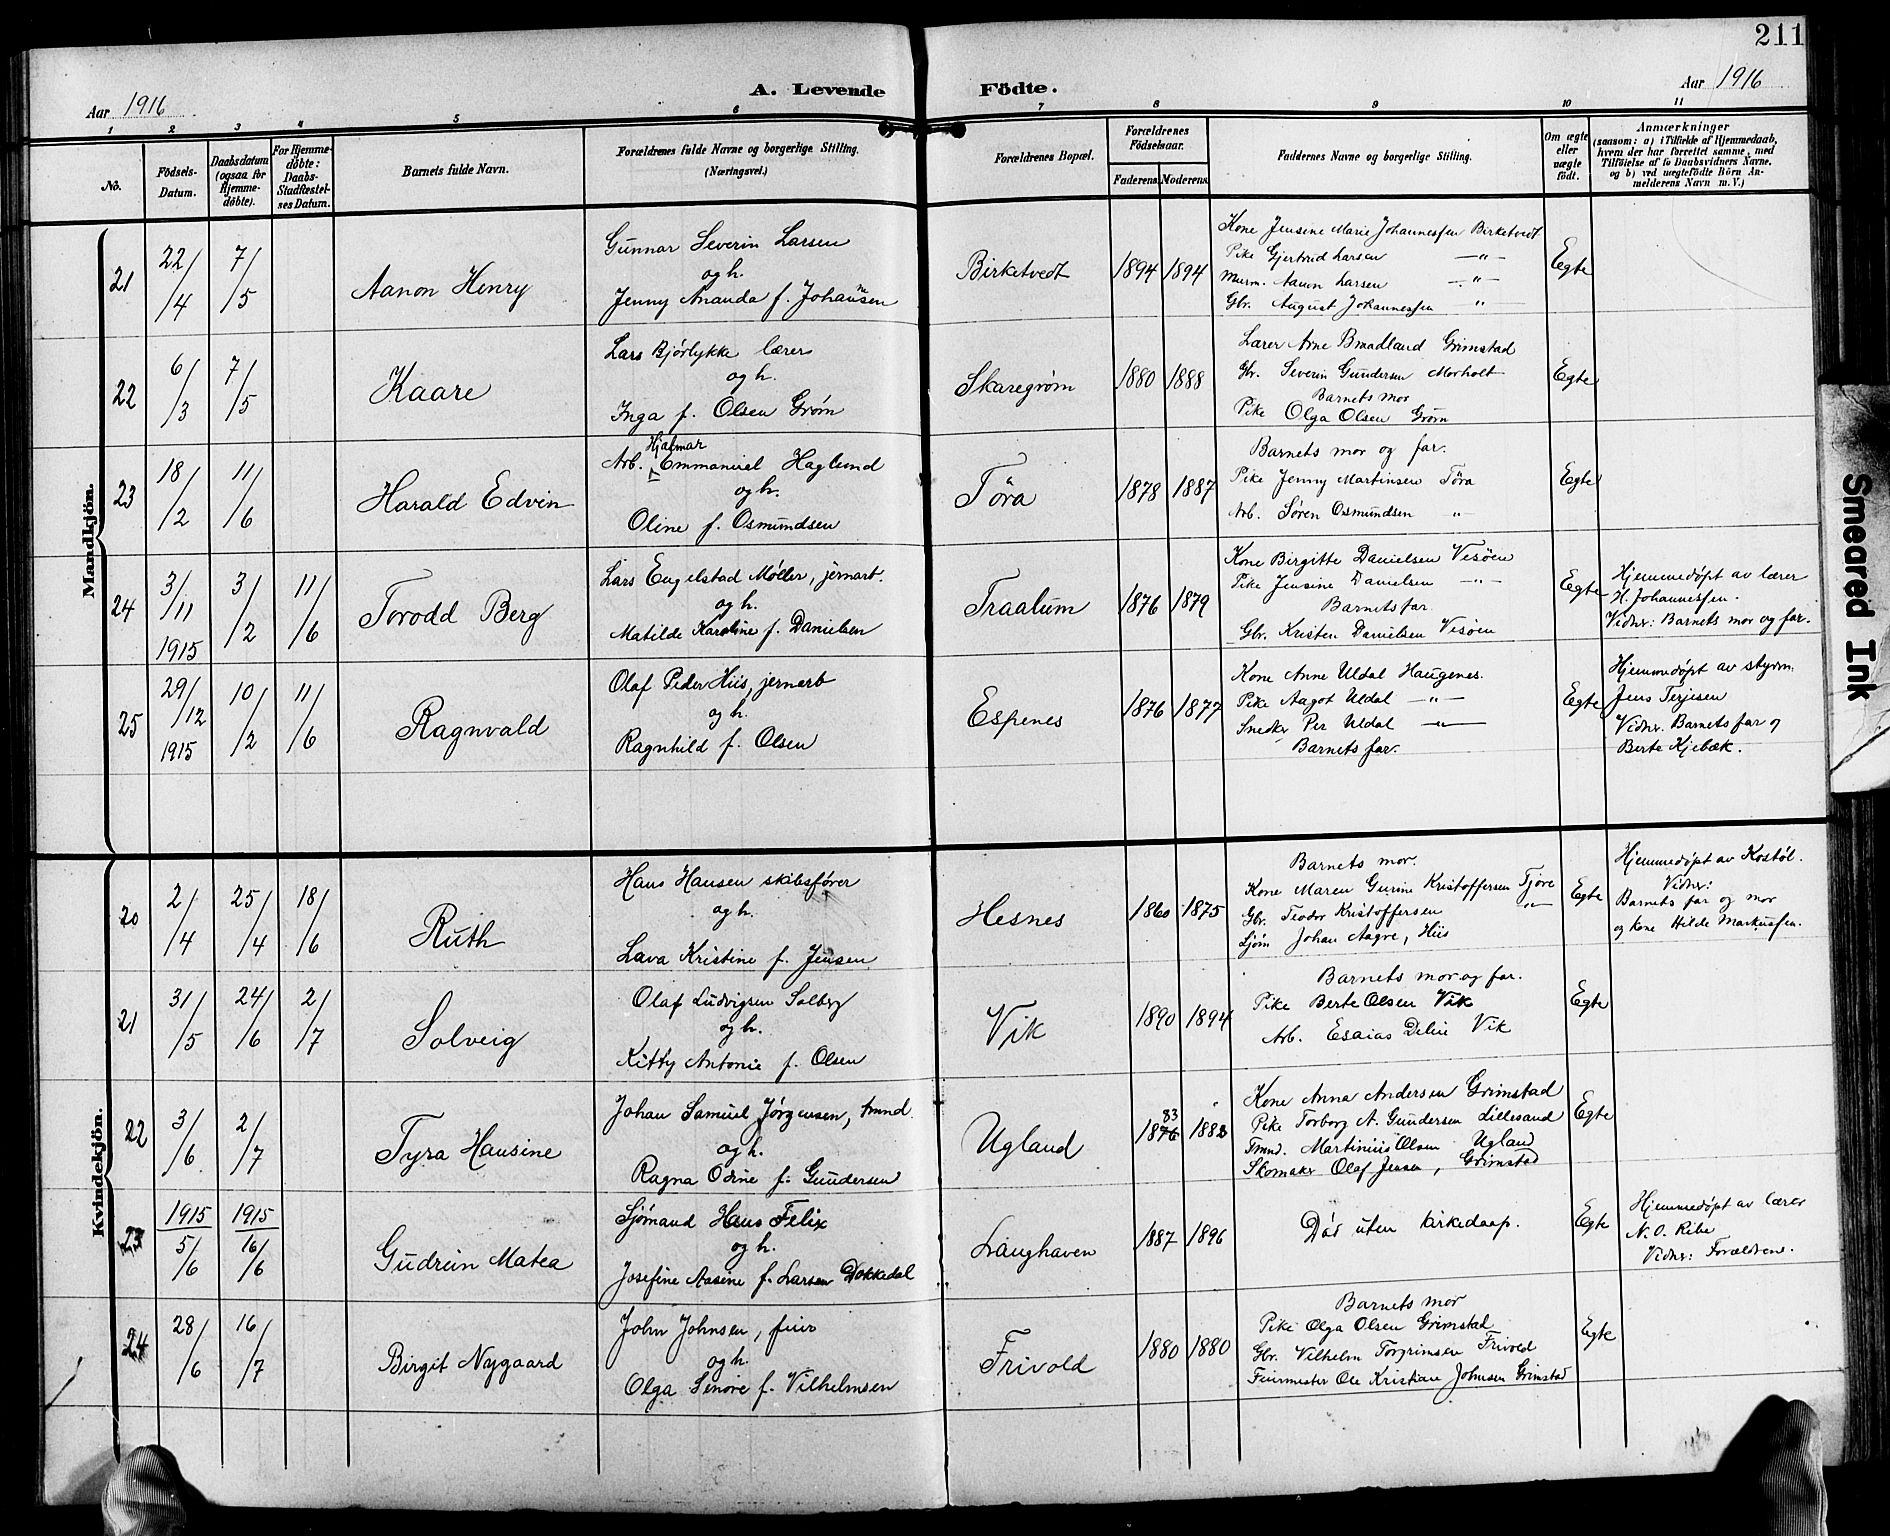 211
Aar 1916
A. Levende Födte.
Aar 1916
1 2 3 4 5 6 7 8 9 10 11
No.
Födsels-Datum.
Daabsdatum (ogsaa for Hjemmedöbte).
For Hjemmedöbte: Daabs-Stadfæstelses Datum.
Barnets fulde Navn.
Forældrenes fulde Navne og borgerlige Stilling. (Næringsvei.)
Forældrenes Bopæl.
Forældrenes Födselsaar.
Faderens Moderens.
Faddernes Navne og borgerlige Stilling.
Om ægte eller uægte födt.
Anmærkninger
(saasom: a) i Tilfælde af Hjemmedaab,
hvem der har forrettet samme, med
Tilföielse af to Daabsvidners Navne.
og b) ved uægtefödte Börn An-
melderens Navn m. V.)
Mandkjön.
21
22/4
7/5
Aanon Henry
Gunnar Severin Larsen
og h.
Jenny Ananda f. Johansen
Birketvedt
1894 1894
Kone Jensine Marie Johannessen Birketvedt
Pike Gjertrud Larsen —"—
Murm. Aanon Larsen —"—
Gbr. August Johannessen "
Egte
22
6/3
7/5
Kaare
Lars Bjørlykke lærer
og h.
Inga f. Olsen Grøm
Skaregrøm
1880 1888
Lærer Arne Braadland Grimstad
Gbr. Severin Gundersen Morholt
Barnets mor
Pike Olga Olsen Grøm
Egte
23
18/2
11/6
Harald Edvin
Hjalmar
Arb. Emmanuel Haglund
og h.
Oline f. Osmundsen
Töra
1878 1887
Barnets mor og far.
Pike Jenny Martinsen Töra
Arb. Søren Osmundsen "
Egte
24
3/11 1915
3/2
11/6
Torodd Berg
Lars Engelstad Møller, jernarb.
og h.
Matilde Karoline f. Danielsen
Traalum
1876 1879
Kone Birgitte Danielsen Vesøen
Pike Jensine Danielsen —"—
Barnets far
Gbr. Kristen Danielsen Vesøen
Egte
Hjemmedøpt av lærer
H. Johannessen.
Vidner: Barnets mor og far.
25
29/12 1915
10/2
11/6
Ragnvald
Olaf Peder Hiis, jernarb
og h.
Ragnhild f. Olsen
Espenes
1876 1877
Kone Anne Uldal Haugenes.
Pike Aagot Uldal —"—
Snedker Per Uldal —"—
Barnets far.
Egte
Hjemmedøpt av styrm.
Jens Terjesen
Vidner. Barnets far og
Berte Kjebæk.
Kvindekjön.
20
2/4
25/4
18/6
Ruth
Hans Hansen skibsfører
og h.
Lava Kristine f. Jensen
Hesnes
1860 1875
Barnets mor.
Kone Maren Gurine Kristoffersen Tjøre
Gbr. Teodor Kristoffersen "
Sjøm Johan Aagre, Hiis
Egte
Hjemmedøpt av Kostøl.
Vidner:
Barnets far og mor
og kone Hilde Markussen.
21
31/5
24/6
2/7
Solveig
Olaf Ludvigsen Solberg
og h.
Kitty Antonie f. Olsen
Vik
1890 1894
Barnets mor og far.
Pike Berte Olsen Vik
Arb. Esaias Vik
Egte
22
3/6
2/7
Tyra Hansine
Johan Samuel Jørgensen, tmnd.
og h.
Ragna Odine f. Gundersen
Ugland
83
1876 1882
Kone Anna Andersen Grimstad
Pike Torborg A. Gundersen Lillesand
Tmnd. Martinius Olsen Ugland
Skomaker Olaf Jensen, Grimstad
Egte
23
1915 5/6
1915 16/6
Gudrun Matea
Sjømand Hans Felix
og h.
Josefine Aasine f. Larsen Dokkedal
Langhaven
1887 1896
Død uten kirkedaap.
Egte
Hjemmedøpt av lærer
N. O. Ribe
Vidner: Forældrene.
24
28/6
16/7
Birgit Nygaard
John Johnsen, feier
og h.
Olga Lenore f. Vilhelmsen
Frivold
1880 1880
Barnets mor
Pike Olga Olsen Grimstad
Gbr. Vilhelm Torgrimsen Frivold
Feiermester Ole Kristian Johnsen Grimstad
Egte
Smeared Ink